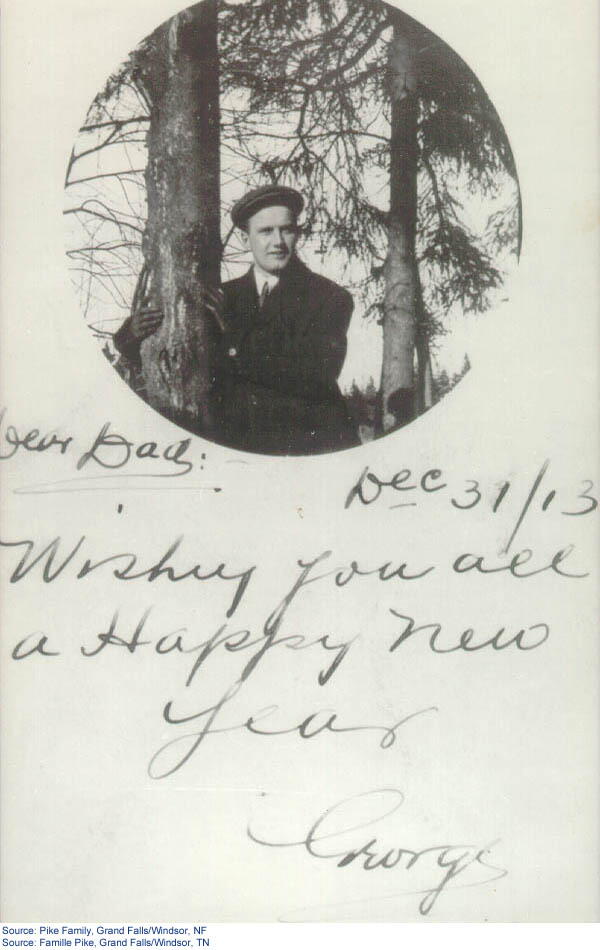 Dear Dad:
Dec 31/13
Wishing you all
a Happy New
Year
George
Source: Pike Family, Grand Falls/Windsor, NF
Source: Famille Pike, Grand Falls/Windsor, TN